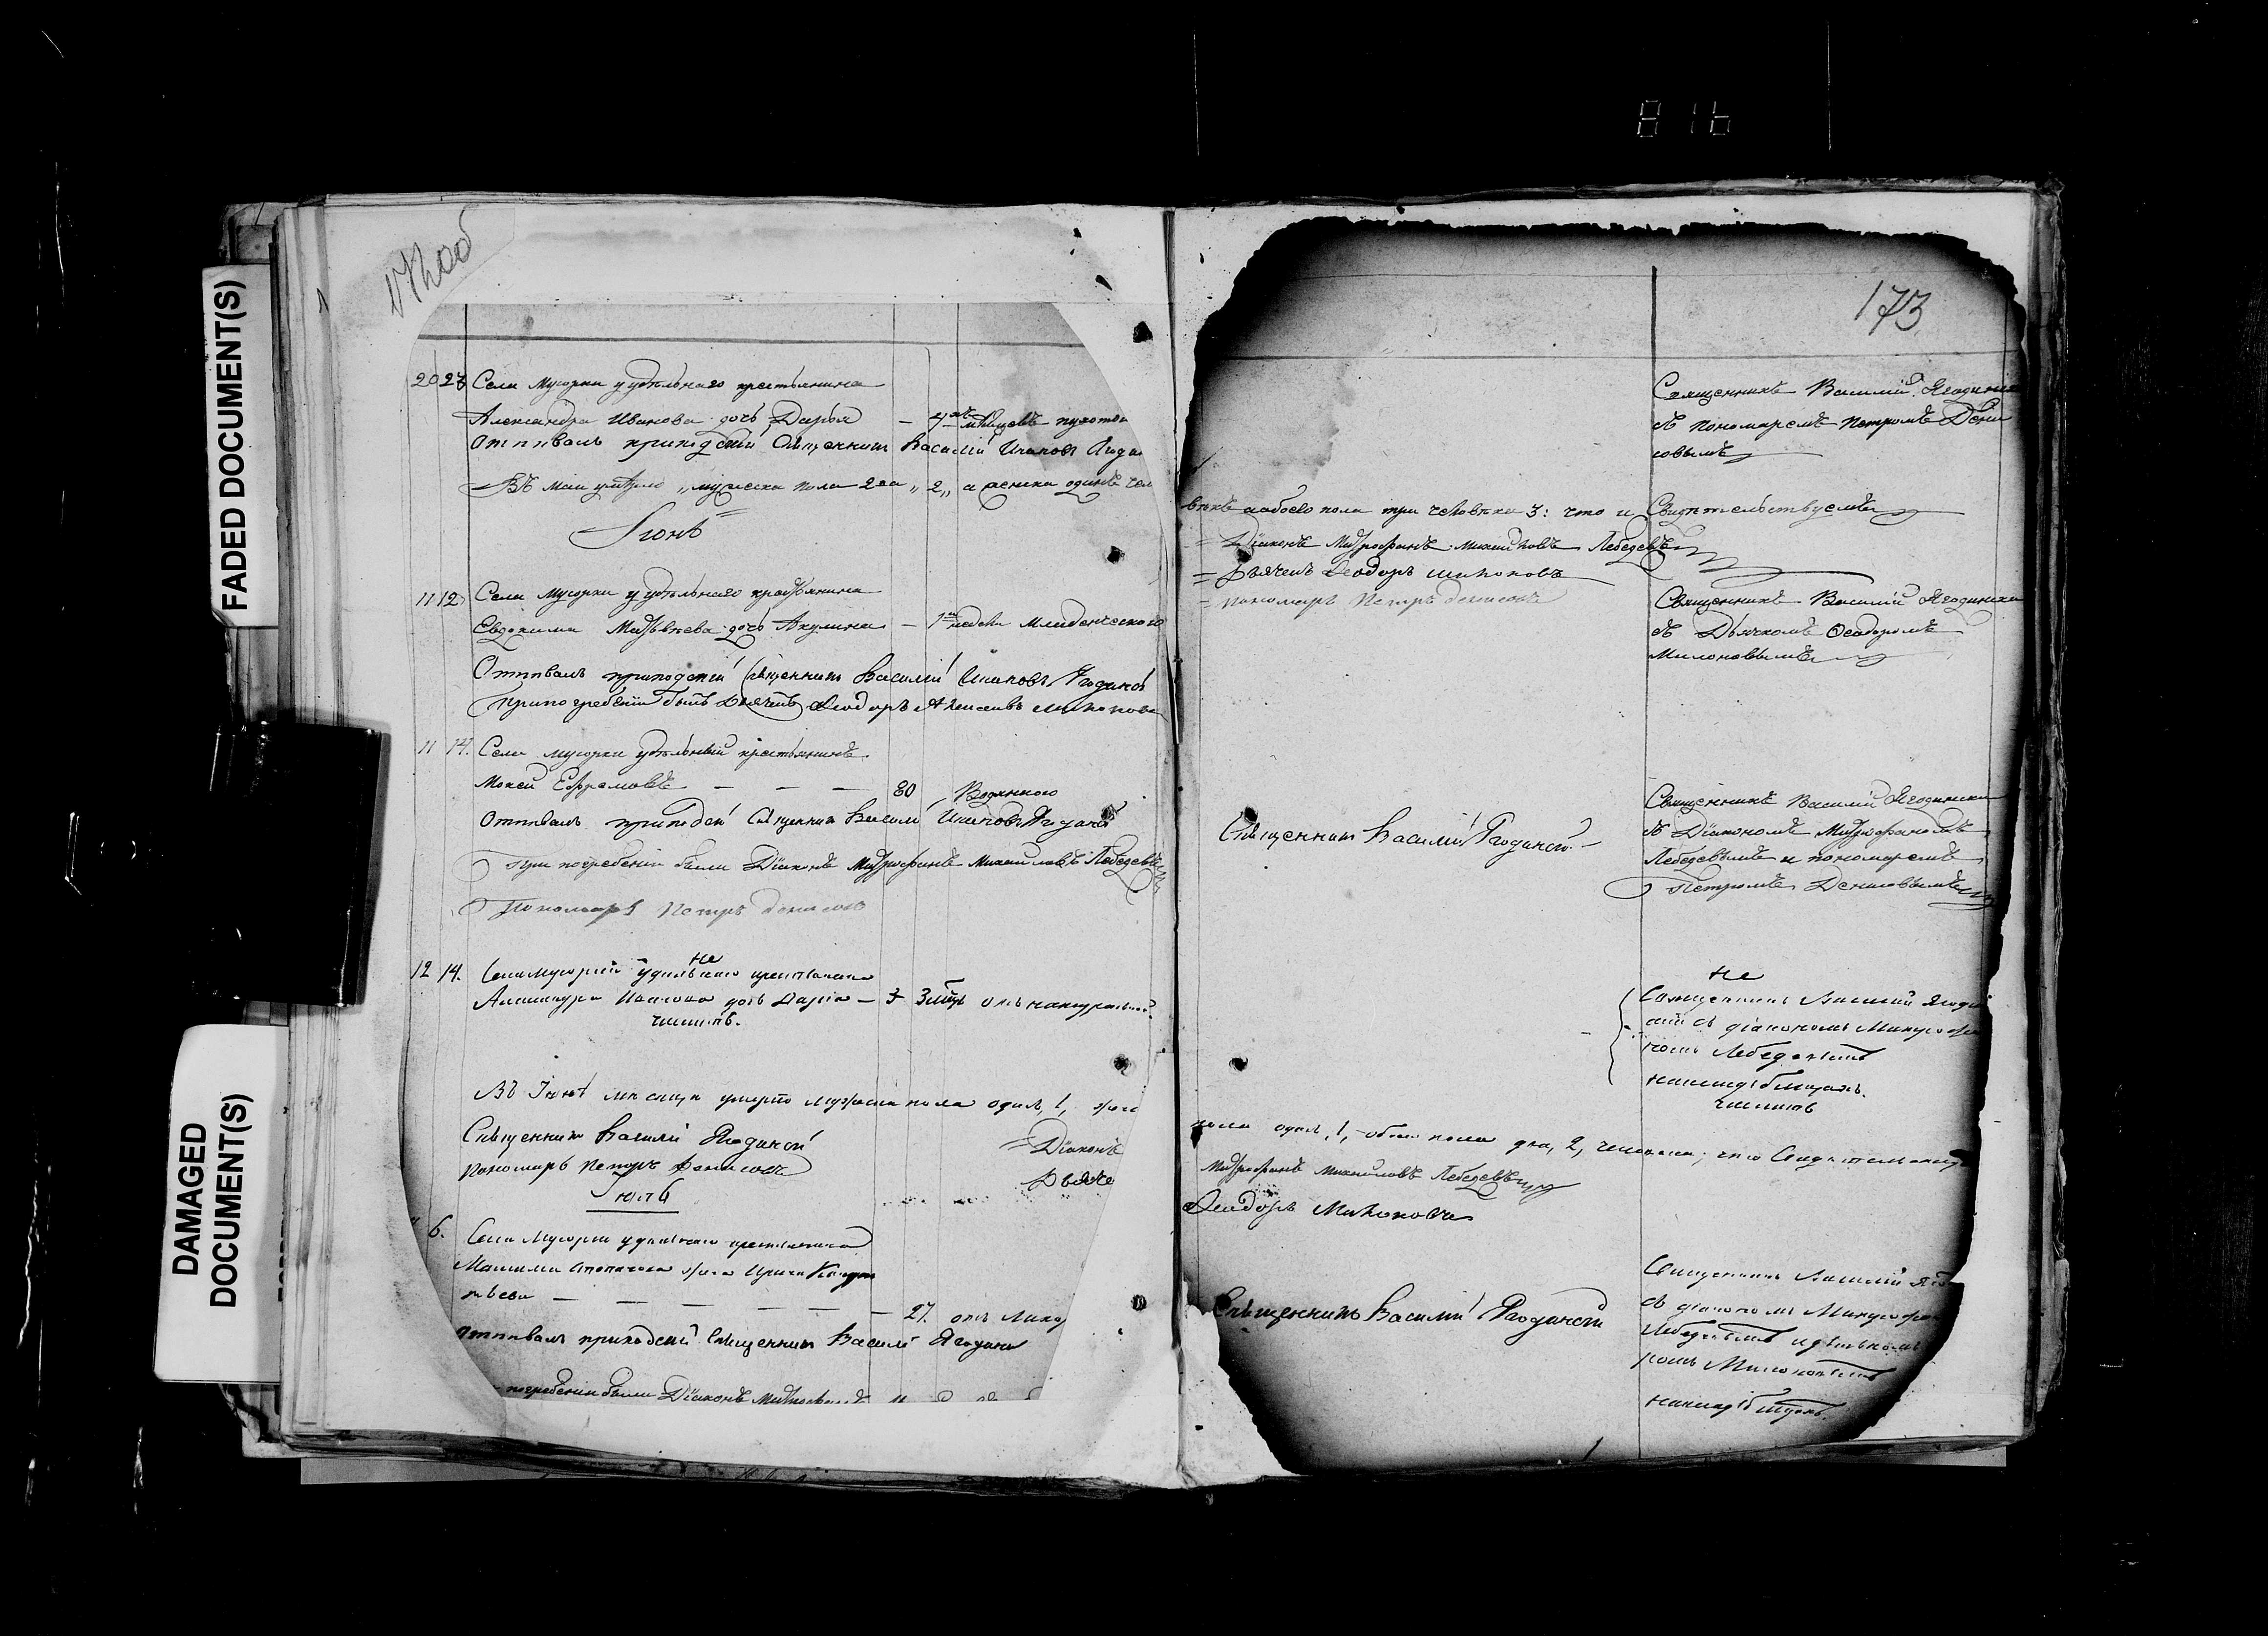 816
FADED DOCUMENT(S)
DAMAGED
DOCUMENT(S)
172 об
20 23 Села Мусорки удѣльнаго крестьянина
Александра Иванова дочь Дарья — 4 мѣсяцевъ
Отпѣвалъ приходскій Священникъ Василій Ягод
Въ маи умерло „ мужеска пола два „ 2 „ а женска одинъ чел
Іюнь
11 12 Села Мусорки удѣльнаго крестьянина
Евдокима Матвѣева дочь Акулина — 1 недѣли младенческаго
Отпѣвалъ приходскій Священникъ Василій Ягодинскій
При погребеніи былъ Дьячекъ Ѳеодоръ Милонова
11 14. Села Мусорки удѣльный крестьянинъ
Мокей Ефремовъ — — — 80 Водяного
Отпѣвалъ приходскій Священникъ Василій Ягодинскій
При погребеніи были Діаконъ Митрофанъ Михайловъ Лебедевъ
Пономарь Петръ Денисовъ
12 14. Села Мусорки удѣльнаго крестьянина
не
Александра Иванова дочь Дарья — 3 мѣц отъ натуральной
числить.
Въ Іюнѣ мѣсяцѣ умерло мужеска пола одинъ, 1, жен
Священникъ Василій Ягодинскій = Діаконъ
Пономарь Петръ Денисовъ Дьяче
Юль
" 6. Села Мусорки удѣльнаго крестьянина
Максима жена Ирина Кондра
тьева — — — — — — 27. отъ
Отпѣвалъ приходскій Священникъ Василій Ягодинс
погребеніи были Діаконъ Митрофанъ
173
Священникъ Василій Ягодинскі
съ пономаремъ Петромъ Дени
совымъ
вѣкъ а обоего пола три человѣка 3: что и Свидѣтельствуемъ
= Діаконъ Митрофанъ Михайловъ Лебедевъ
= Дьячекъ Ѳеодоръ Милоновъ
= пономарь Петръ Денисовъ
Священникъ Василій Ягодинскі
съ Дьячкомъ Ѳеодоромъ
Милоновымъ
Священникъ Василій Ягодинскій
Священникъ Василій Ягодински
съ Діакономъ Митрофаномъ
Лебедевымъ и пономаремъ
Петромъ Денисовымъ
не
Священникъ Василій Ягодин
скій съ діакономъ Митрофа
номъ Лебедевымъ
на кладбищахъ.
числить
пола одинъ, 1, обоего пола два, 2, человѣка; что Свидѣтельству
Митрофанъ Михайловъ Лебедевъ
Ѳеодоръ Милоновъ
Священникъ Василій Ягодинскій
Священникъ Василій Яго
съ діакономъ Митрофа
Лебедевымъ и дьячкомъ
Милоновымъ
на кладбищахъ